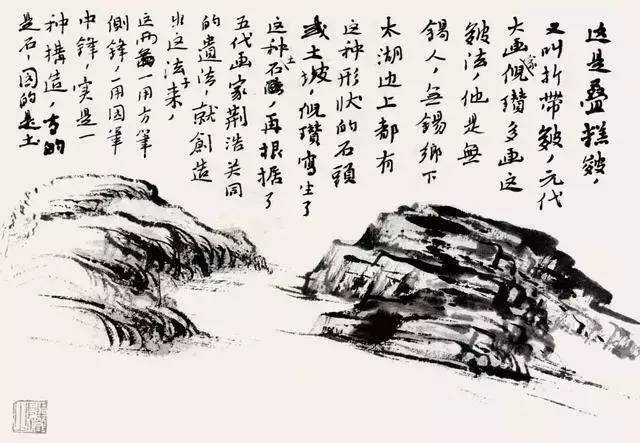 这是叠糕皴，
又叫折带皴，元代
大画家倪瓒多画这
皴法，他是無
錫人，無錫鄉下
太湖边上都有
这种形状的石頭
或土坡，倪瓒寫生了
这种石土，再根据了
五代画家荆浩关同
的遺法，就創造
出这法子来，
这两一用方筆
側鋒，一用圆筆
中鋒，实是一
种構造，方的
是石，圆的是土